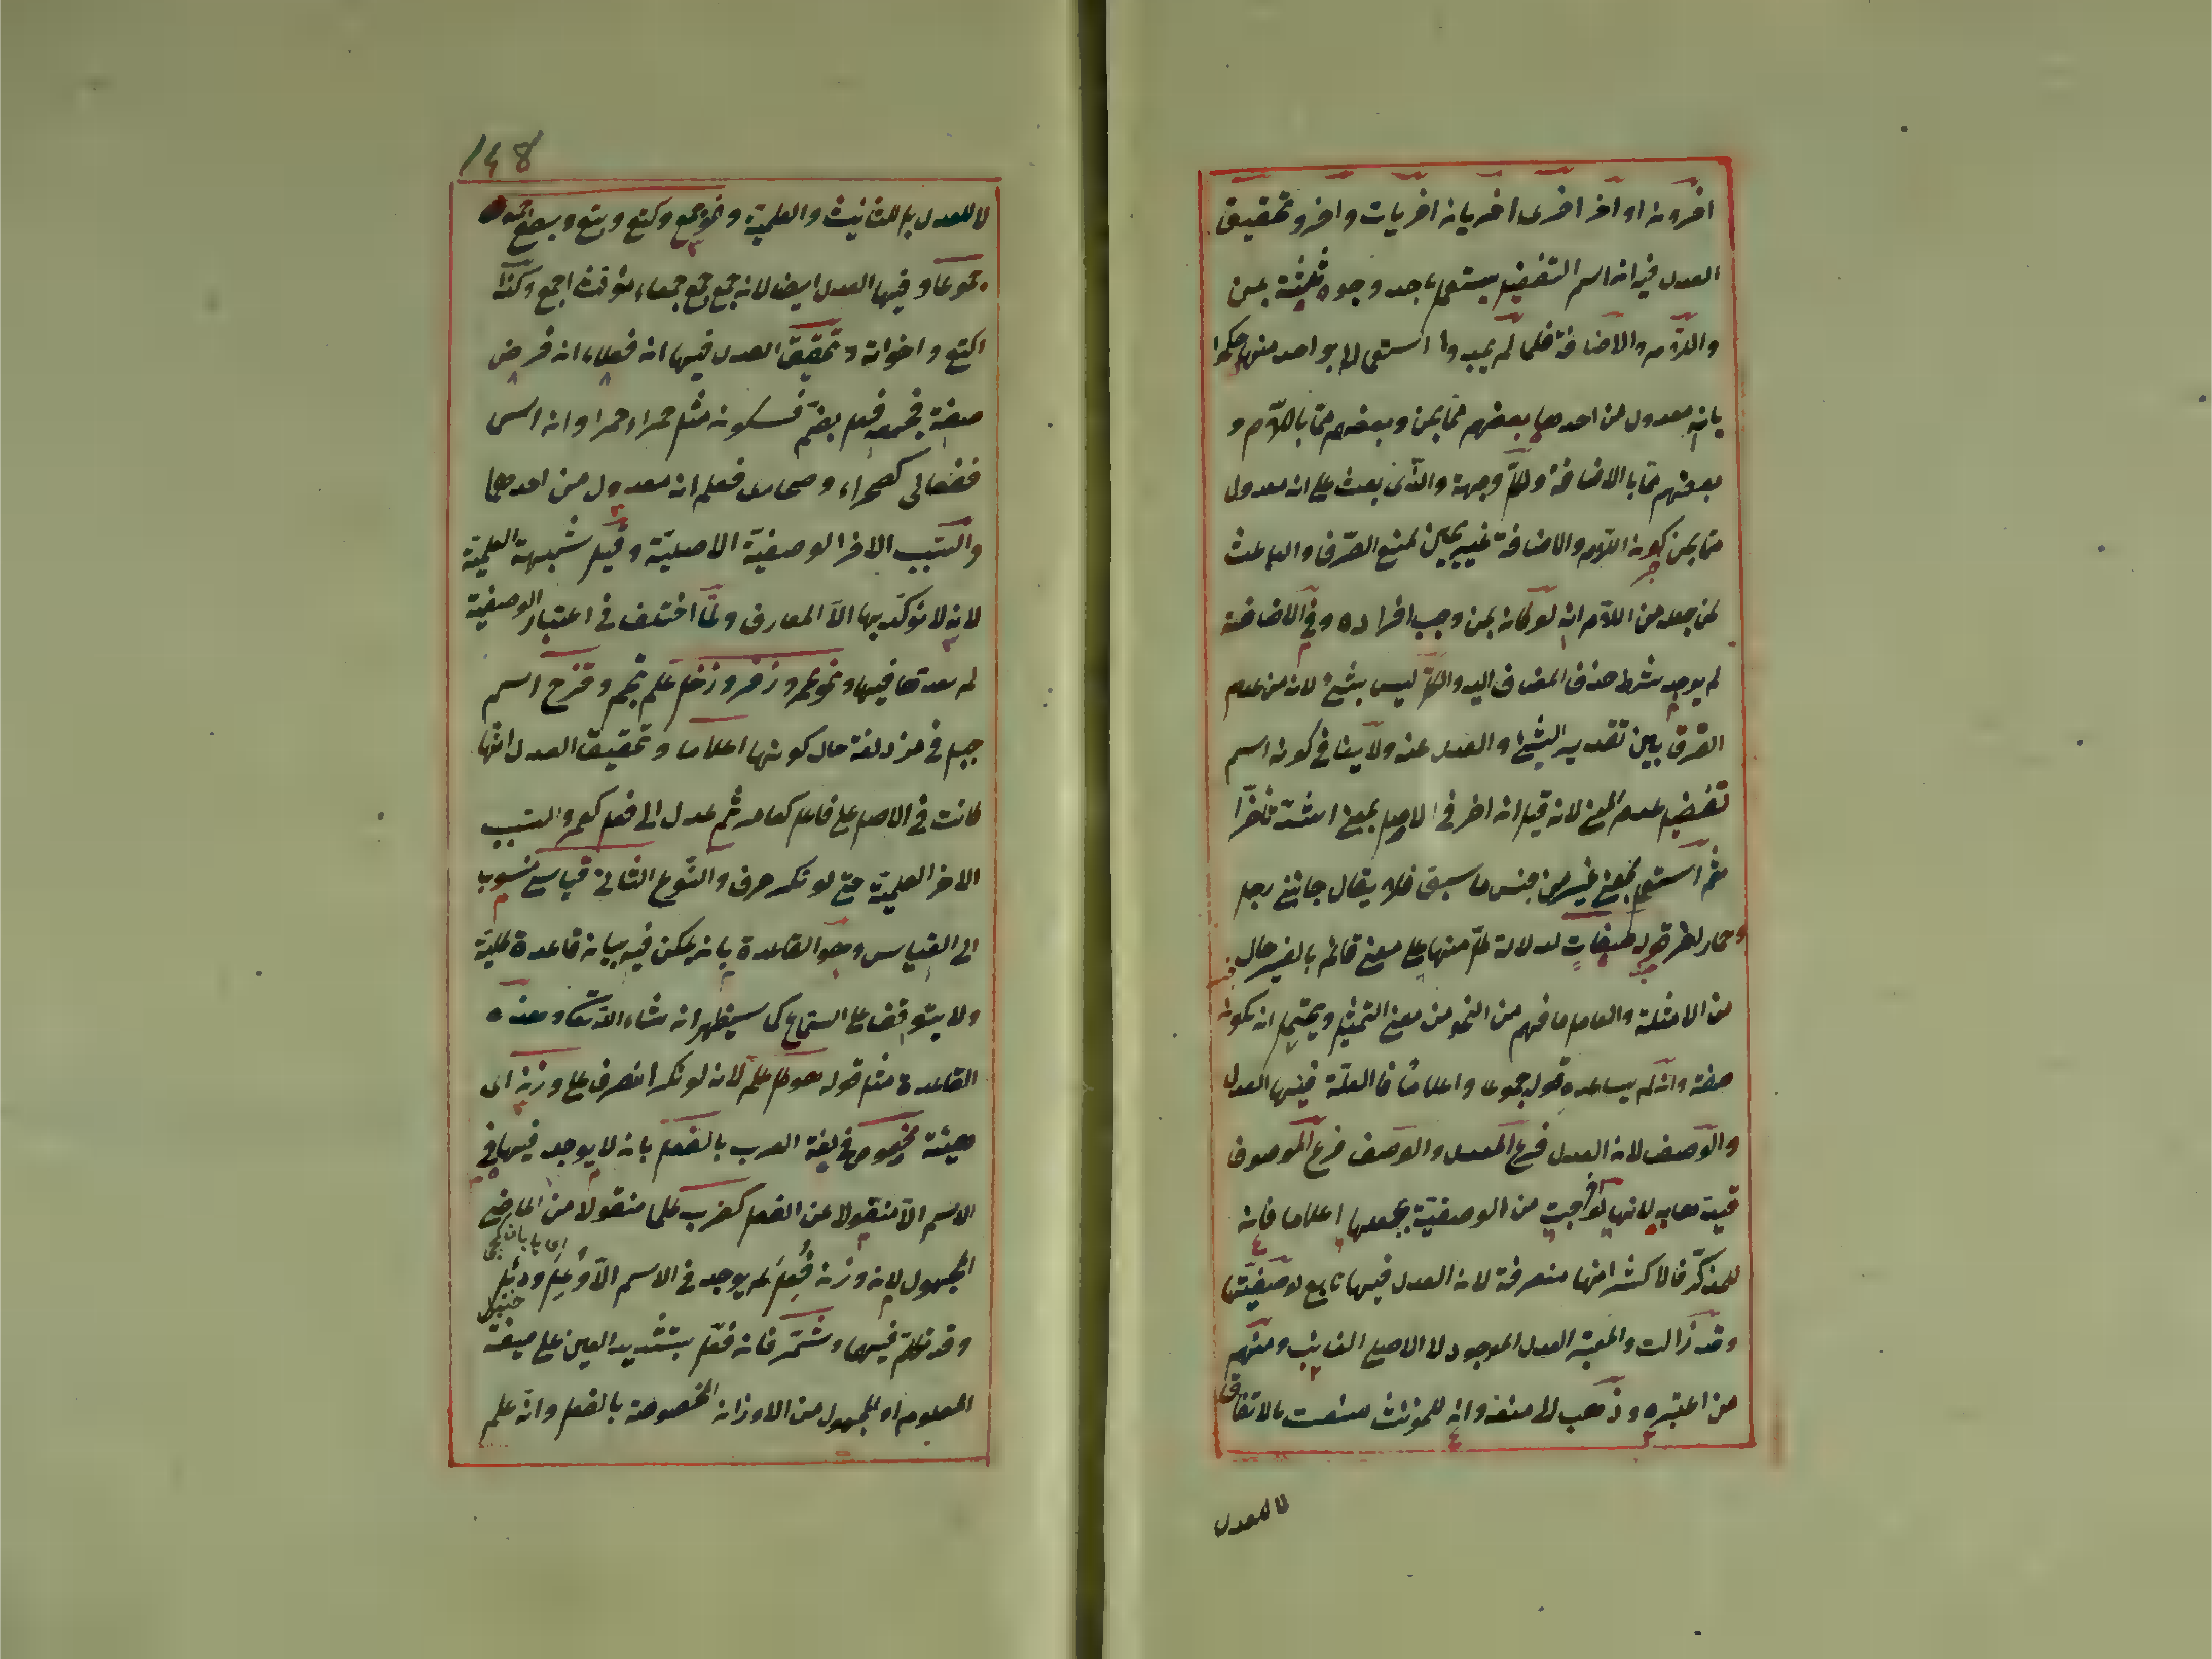 اخرون او اخر اخرى اخريان اخريات واخر وتحقيق
العدل فيه ان اسم التفضيل يستعمل باحد وجوه ثلثة بمن
واللام والاضافة فلما لم يجدوا استعماله بواحد منها حكموا
بانه معدول من احدها بعضهم مما بمن وبعضهم مما باللام و
بعضهم مما بالاضافة ولكل وجهة والذى بعث على انه معدول
مما بمن كون اللام والاضافة غير لمنع الصرف والباعث
لمن جعله من اللام انه لو كان بمن وجب افراده وفي الاضافة
لم يوجد شرط حذف المضاف اليه والكل ليس بشئ لانه من عدم
الفرق بين تقدير الشئ والعدل عنه ولا ينافى كونه اسم
تفضيل عدم المعنى لانه قيل ان اخر في الاصل بمعنى اشد تأخرا
ثم استعمل بمعنى غير من جنس ما سبق فلا يقال جائنى رجل
وحمار اخر قوله صفات لدلالة كل منها على معنى قائم بالغير حال
من الامثلة والعامل ما فهم من النحو من معنى التمثيل ويحتمل ان يكون
صفة وان لم يساعده قوله جموعا واعلاما فالعلة فيها العدل
والوصف لان العدل فرع المعدل والوصف فرع الموصوف
قيد بها به لانها لو اخرجت من الوصفية بجعلها اعلاما فان
للمذكر فالاكثر انها منصرفة لان العدل فيها تابع لوصفيتها
وقد زالت والمعتبر العدل الموجود لا الاصلى الغائب ومنهم
من اعتبره وذهب الى منعه وان للمؤنث منعت بالاتفاق
لا للعدل
148
لا للعدل بل للتانيث والعلمية ونحو جمع وكتع وبتع وبصع
جموعا وفيها العدل ايضا لانه جمع جمع جمعاء مؤنث اجمع وكذا
اكتع واخواته وتحقيق العدل فيها ان فعلاء ان فرض
صفة فجمعه فعل بضم فسكون مثل حمراء حمر او ان اسم
ففعالى كصحراء وصحارى فعلم انه معدول من احدهما
والسبب الاخر الوصفية الاصلية وقيل شبهة العلمية
لانه لا يؤكد بها الا المعارف ولما اختلف في اعتبار الوصفية
لم يعدها فيها ونحو عمر وزفر وزحل علم نجم وقزح اسم
جبل في مزدلفة حال كونها اعلاما وتحقيق العدل انها
كانت في الاصل على فاعل كعامر ثم عدل الى فعل كعمر والسبب
الاخر العلمية حتى لو نكر صرف والنوع الثانى قياسى منسوب
الى القياس وهو القاعدة بان يمكن فيه بيان قاعدة كلية
ولا يتوقف على السماع كما سيظهر ان شاء الله تعالى وهذه
القاعدة مثل قوله هو كل علم لانه لو نكر انصرف على وزن اى
هيئة مخصوص في لغة العرب بالفعل بان لا يوجد فيها في
الاسم الا منقولا عن الفعل كضرب علما منقولا من الماضى
المجهول لان وزن فُعِل لم يوجد في الاسم الا وُعِل ودُئل
وقد تكلم فيهما وشمّر فانه فعّل بتشديد العين على صيغة
المعلوم او المجهول من الاوزان المخصوصة بالفعل وانه علم